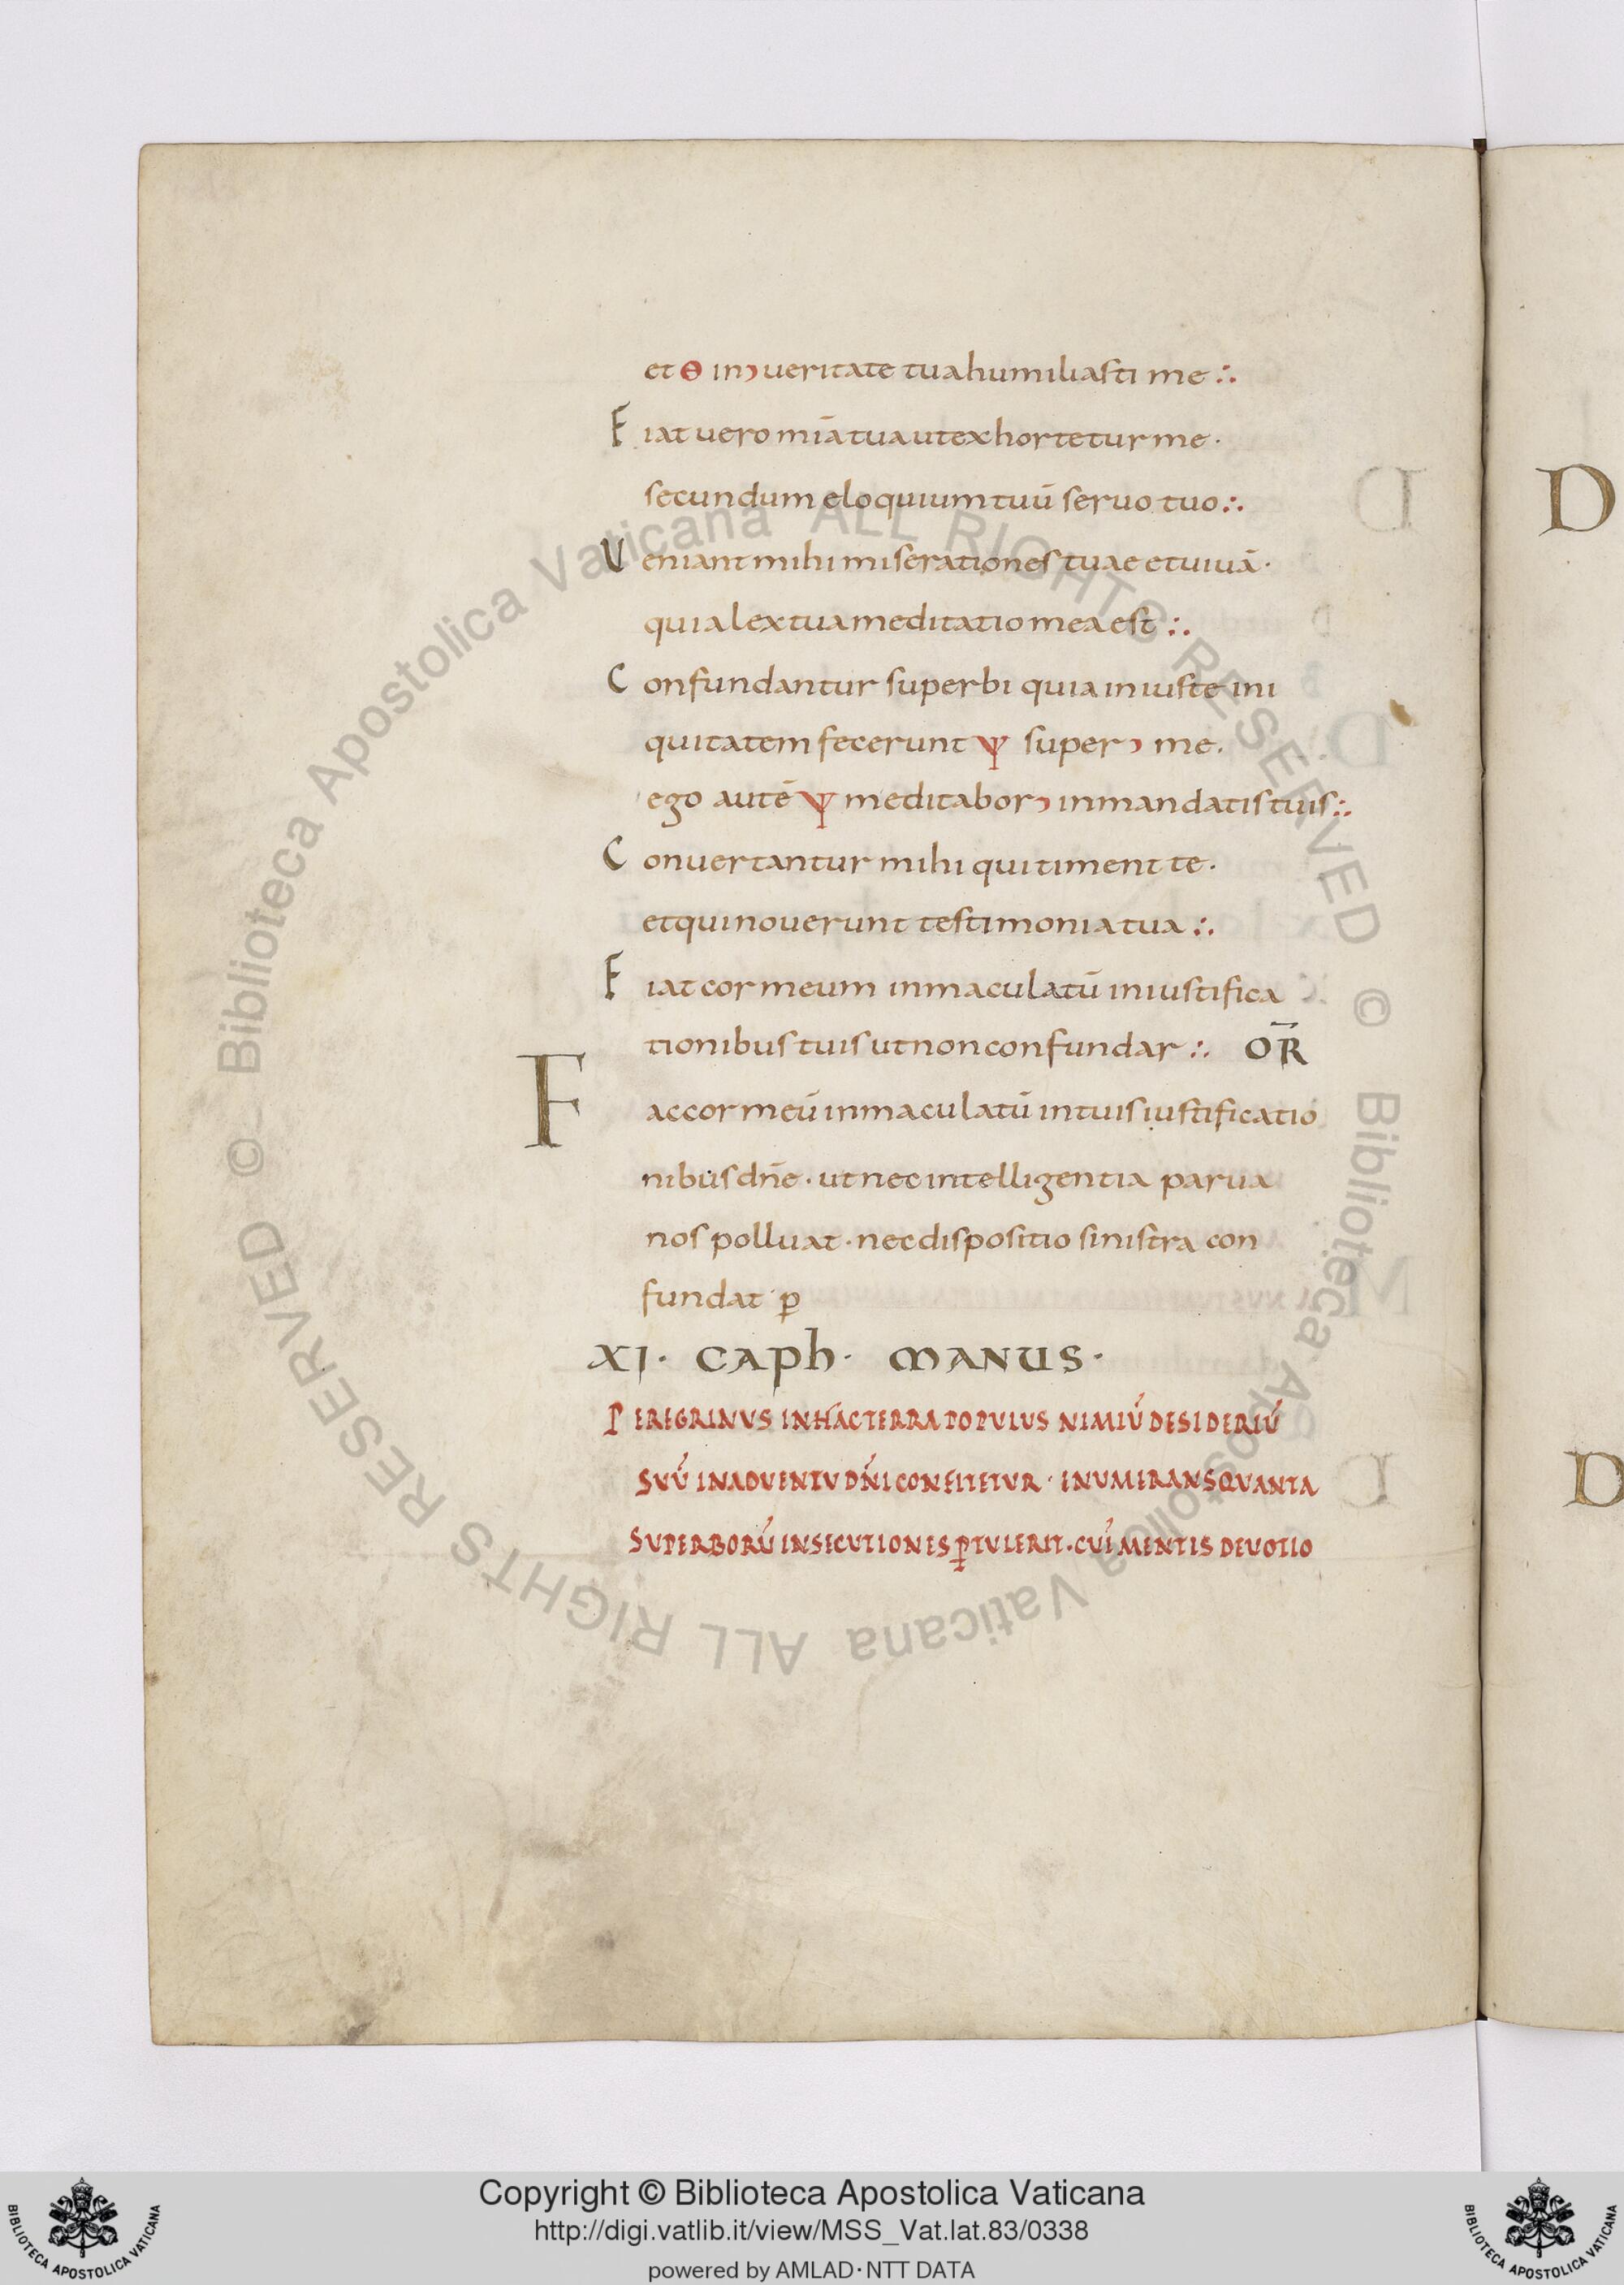 et Θ in, ueritate tua humiliasti me ∴
Fiat uero mīa tua ut exhortetur me ·
secundum eloquium tuū seruo tuo ∴
Ueniant mihi miserationes tuae et uiuā ·
quia lex tua meditatio mea est ∴
Confundantur superbi quia iniuste ini
quitatem fecerunt Ψ super, me ·
ego autē Ψ meditabor, in mandatis tuis ∴
Conuertantur mihi qui timent te ·
et qui nouerunt testimonia tua ∴
Fiat cor meum inmaculatū in iustifica
tionibus tuis ut non confundar ∴ OR̄
Fac cor meū inmaculatū in tuis iustificatio
nibus dn̄e · ut nec intelligentia parua
nos polluat · nec dispositio sinistra con
fundat · p
XI · CAPh · MANUS ·
PEREGRINUS IN HAC TERRA POPULUS NIMIŪ DESIDERIŪ
SUŪ IN ADUENTU DN̄I CONFITETUR · ENUMERANS QUANTA
SUPERBORŪ INSECUTIONES PTULERIT · CUI MENTIS DEUOTIO
D
D
© Biblioteca Apostolica Vaticana ALL RIGHTS RESERVED © Biblioteca Apostolica Vaticana ALL RIGHTS RESERVED
Copyright © Biblioteca Apostolica Vaticana
http://digi.vatlib.it/view/MSS_Vat.lat.83/0338
powered by AMLAD·NTT DATA
BIBLIOTECA APOSTOLICA VATICANA
BIBLIOTECA APOSTOLICA VATICANA